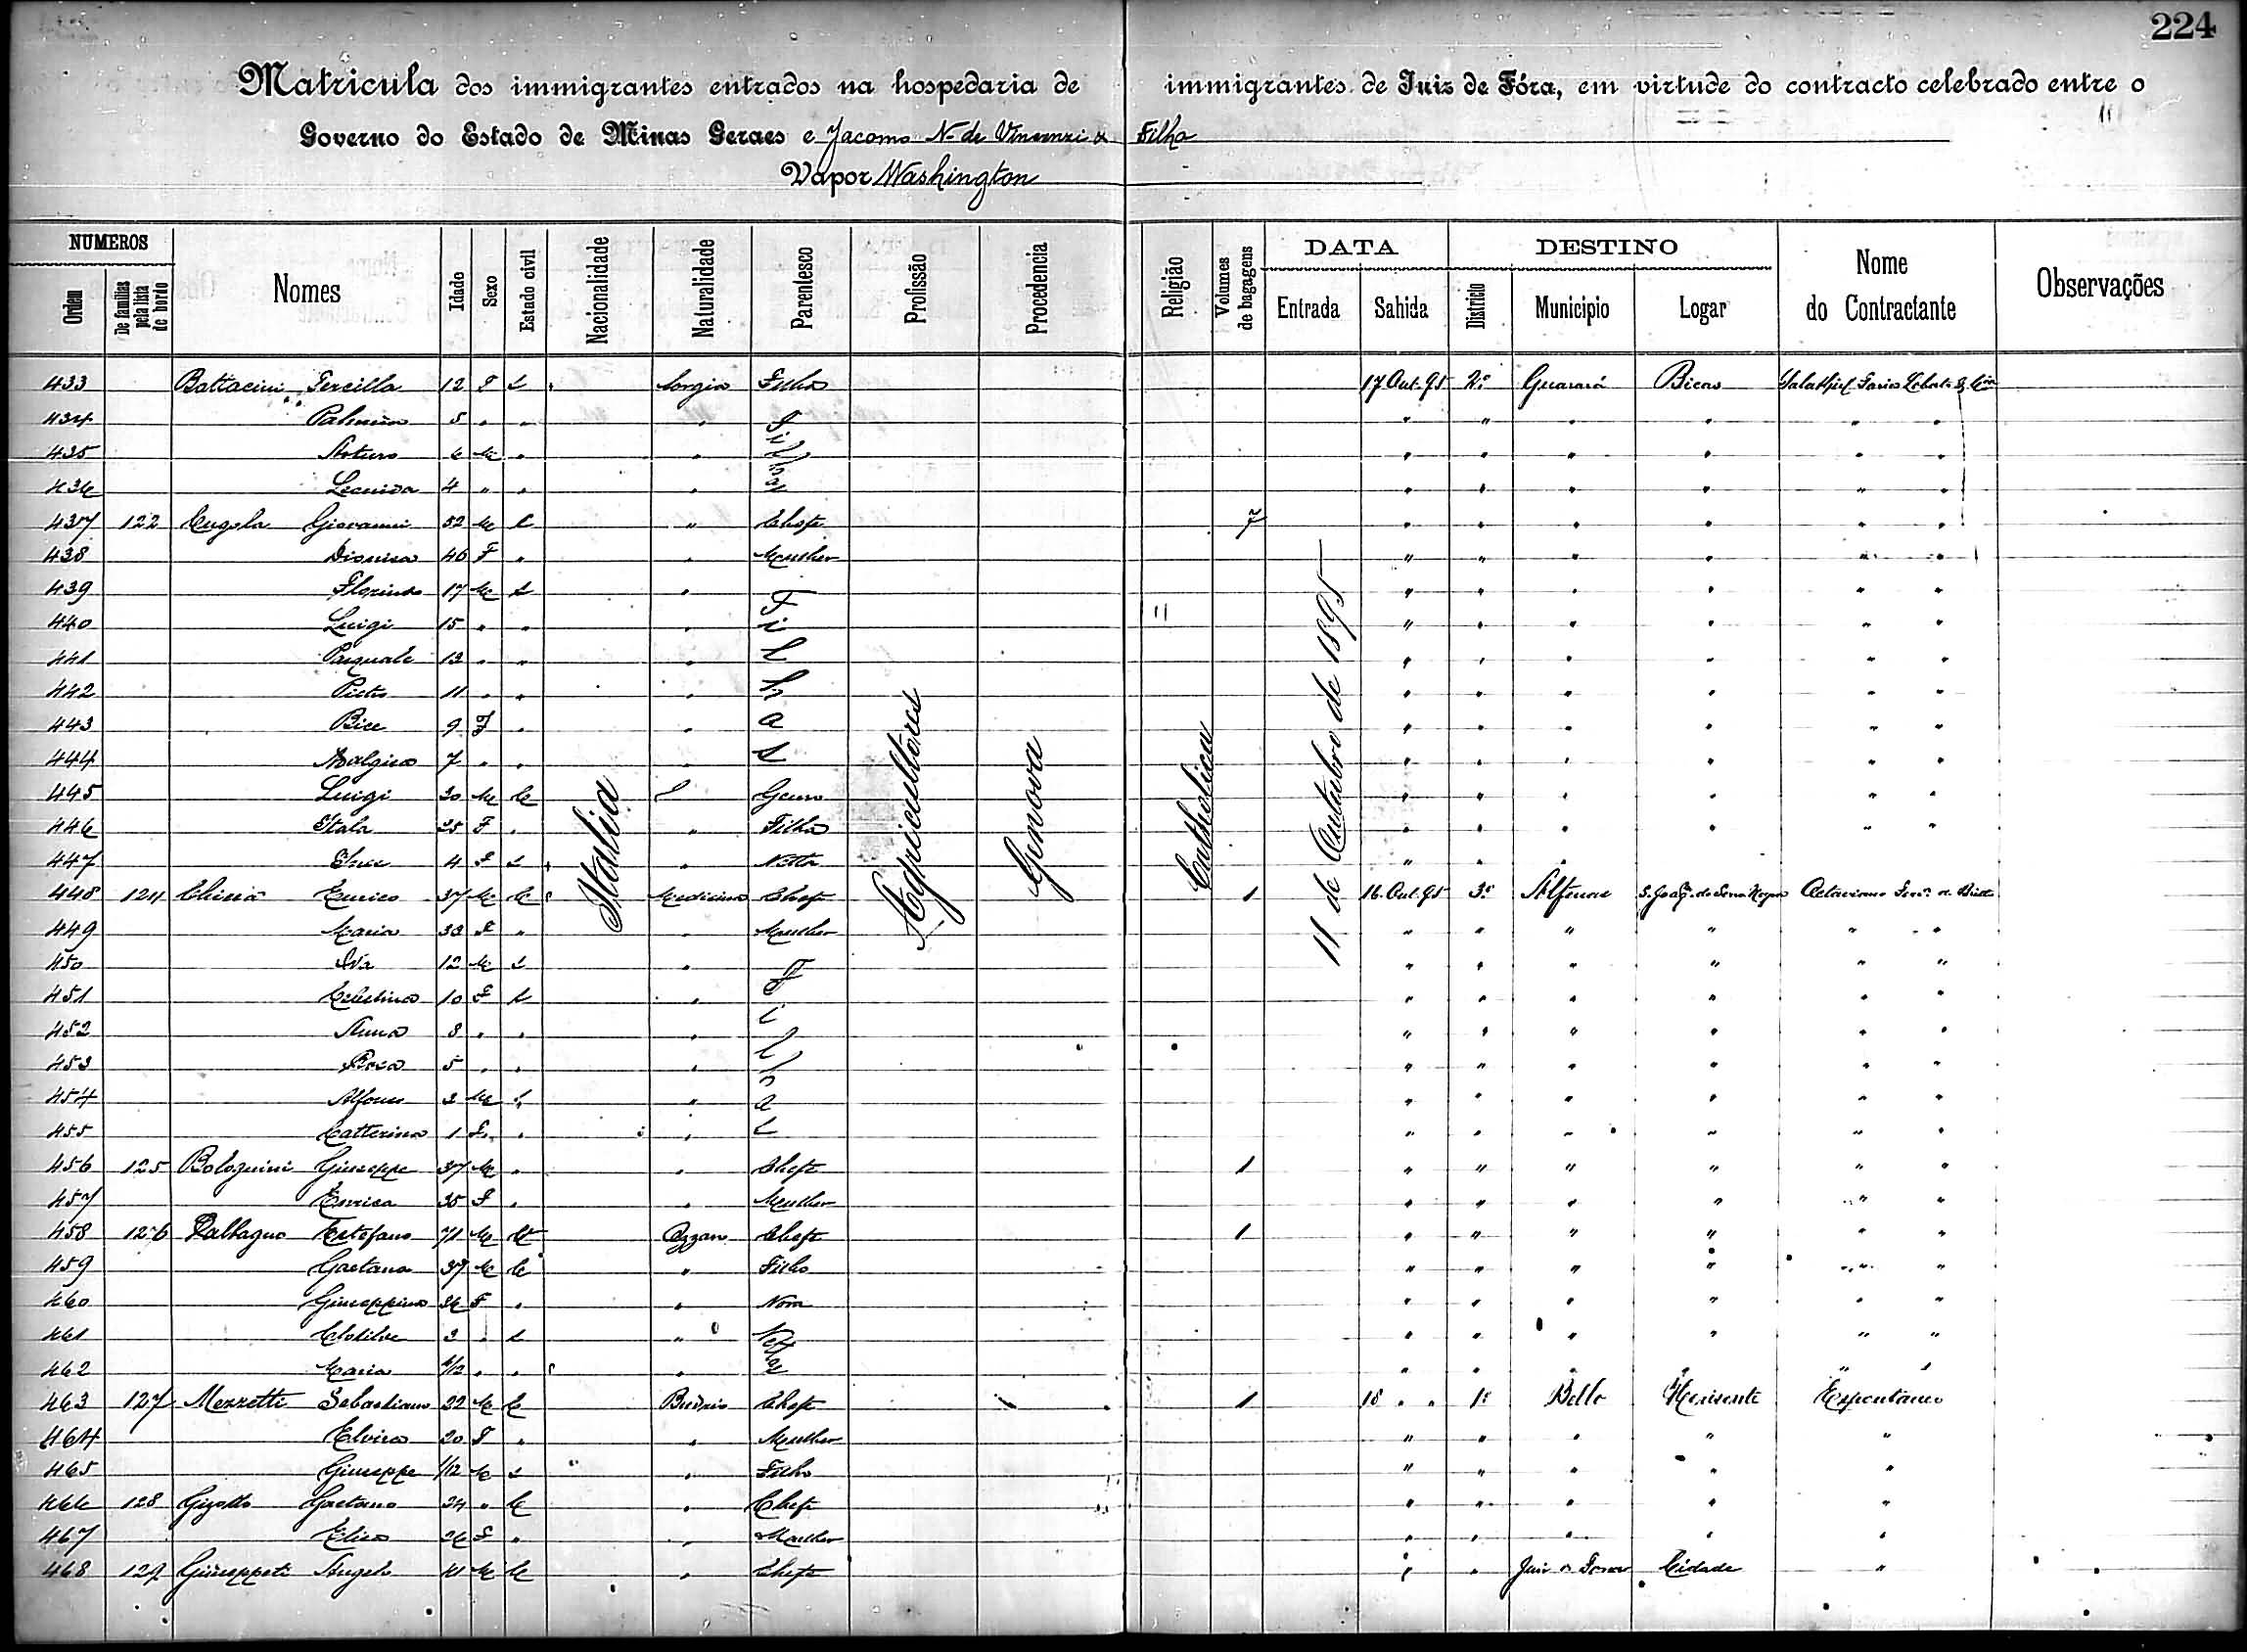 224
Matricula dos immigrantes entrados na hospedaria de immigrantes de Juiz de Fóra, em virtude do contracto celebrado entre o
Governo do Estado de Minas Geraes e Jacomo N. de Vincenzi & Filho
Vapor Washington
NUMEROS
Ordem
De familias pela lista de bordo
Nomes
Idade
Sexo
Estado civil
Nacionalidade
Naturalidade
Parentesco
Profissão
Procedencia
Religião
Volumes de bagagens
DATA
Entrada
Sahida
DESTINO
Districto
Municipio
Logar
Nome do Contractante
Observações
Italia
Agricultores
Genova
Catholica
11 de Outubro de 1895
433 Battacini Tercilla 12 F S Filha 17 Out. 95 2º Guarará Bicas
434 5 " " " " " " " " "
435 Arturo 6 M " " " " " " " "
436 4 " " " " " " " " "
Filhas
437 122 Giovanni 52 M C " Chefe 7 " " " " " "
438 46 F " " Mulher " " " " " "
439 Florindo 17 M S " " " " " " "
440 Luigi 15 " " " " " " " " "
441 Pasquale 13 " " " " " " " " "
442 Pietro 11 " " " " " " " " "
443 Bice 9 F " " " " " " " "
444 7 " " " " " " " " "
Filhas
445 Luigi 30 M C Genro " " " " " "
446 Itala 25 F " " Filha " " " " " "
447 4 F S " Netta " " " "
448 124 Enrico 37 M C Medicina Chefe 1 16 Out. 95 3º Alfenas Octaviano
449 Maria 33 F " " Mulher " " " " " "
450 12 M S " " " " " " "
451 Celestina 10 F S " " " " " " "
452 Anna 8 " " " " " " " " "
453 Rosa 5 " " " " " " " " "
454 Alfonso 3 M S " " " " " " "
455 Catterina 1 F " " " " " " " "
Filhas
456 125 Bolognini Giuseppe 37 M " " Chefe 1 " " " " " "
457 Enrica 35 F " " Mulher " " " " " "
458 126 Dallagno Estefano 71 M Ozzano Chefe 1 " " " " " "
459 Gaetano 37 M C " Filho " " " " " "
460 Giuseppina 36 F " " Nora " " " " " "
461 Clotilde 3 " S " Nettas " " " " " "
462 Maria " " " " " " " " "
463 127 Mezzetti Sebastiano 22 M C Budrio Chefe 1 18 " " 1º Bello Horisonte Espontaneo
464 Elvira 20 F " " Mulher " " " " "
465 Giuseppe 1/12 M S " Filho " " " " "
466 128 Gaetano 24 " C " Chefe " " " " "
467 Elisa 26 F " " Mulher " " " " "
468 129 Giuseppeti Angelo 41 M C " Chefe " " Juiz de Fora Cidade "